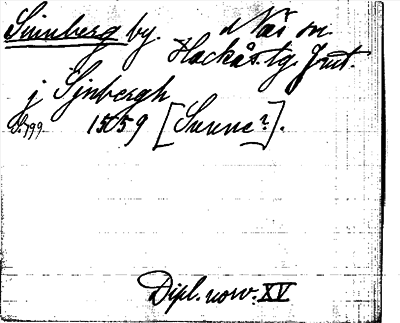 Sinnberg by. i Näs sn
Hackås tg. Jmt.
j Sijnbergh
S. 199. 1559 [Sunne?].
Dipl. norv. XV